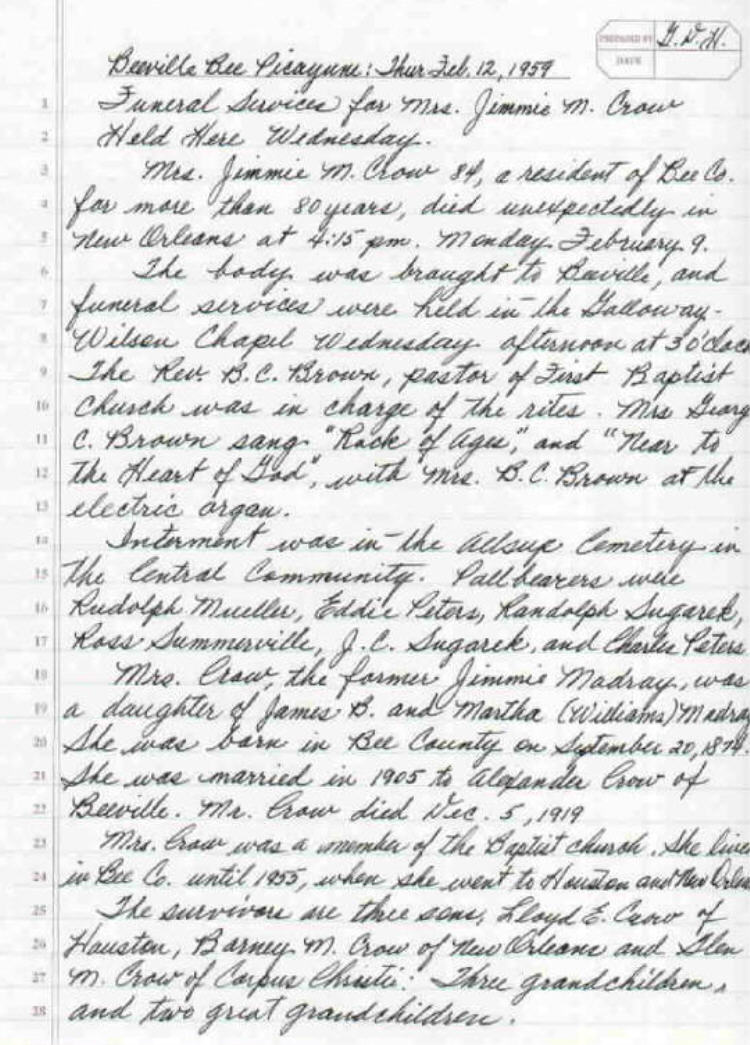 PREPARED BY G.D.H.
DATE
Beeville Bee Picayune: Thur Feb. 12, 1959
1 Funeral Services for Mrs. Jimmie M. Crow
2 Held Here Wednesday.
3 Mrs. Jimmie M. Crow 84, a resident of Bee Co.
4 for more than 80 years, died unexpectedly in
5 New Orleans at 4:15 pm. Monday February 9.
6 The body was brought to Beeville, and
7 funeral services were held in the Galloway-
8 Wilson Chapel Wednesday afternoon at 3 o'clock
9 The Rev. B.C. Brown, pastor of First Baptist
10 Church was in charge of the rites. Mrs Georg
11 C. Brown sang "Rock of Ages", and "Near to
12 the Heart of God", with Mrs. B.C. Brown at the
13 electric organ.
14 Interment was in the Allsup Cemetery in
15 the Central Community. Pallbearers were
16 Rudolph Mueller, Eddie Peters, Randolph Sugarek,
17 Ross Summerville, J.C. Sugarek, and Charles Peters
18 Mrs. Crow, the former Jimmie Madray, was
19 a daughter of James B. and Martha (Williams) Madray
20 She was born in Bee County on September 20, 1874.
21 She was married in 1905 to Alexander Crow of
22 Beeville. Mr. Crow died Dec. 5, 1919
23 Mrs. Crow was a member of the Baptist church. She live
24 in Bee Co. until 1955, when she went to Houston and New Orlea
25 The survivors are three sons, Lloyd E. Crow of
26 Houston, Barney M. Crow of New Orleans and Glen
27 M. Crow of Corpus Christi: Three grandchildren,
28 and two great grandchildren.